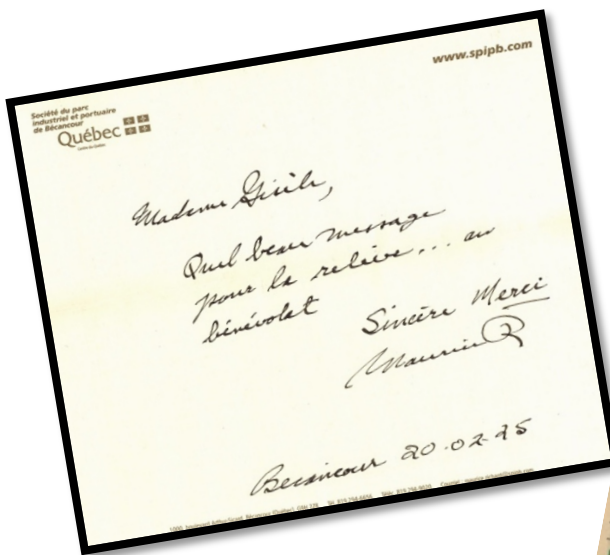 www.spipb.com
Société du parc
industriel et portuaire
de Bécancour
Québec
Madame Gisèle,
Quel beau message
pour la relève... au
bénévolat
Sincère Merci
Maurice R
Becancour 20-02-25